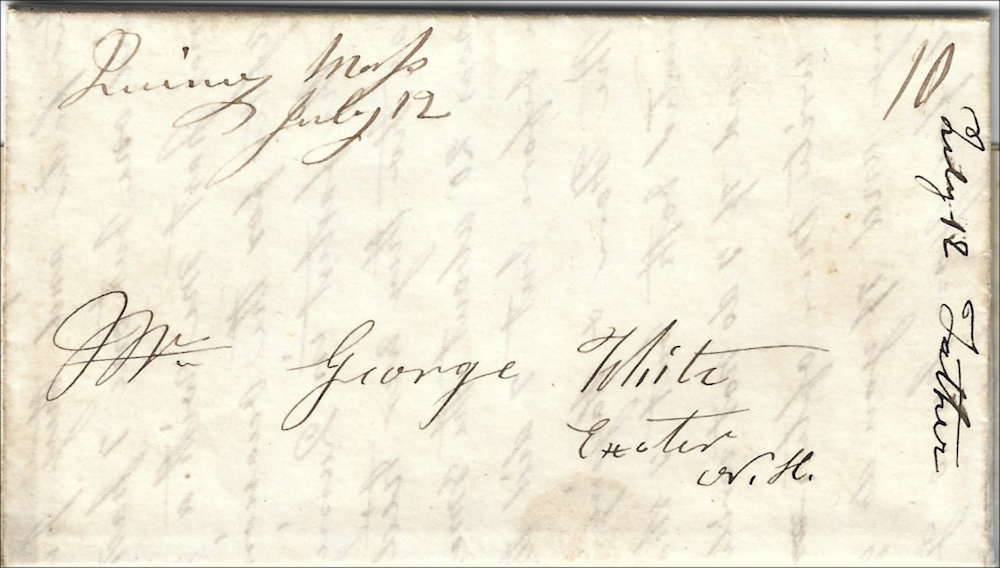 Quincy Mass
July 12
10
Mr George White
Exeter
N. H.
July 12 Father